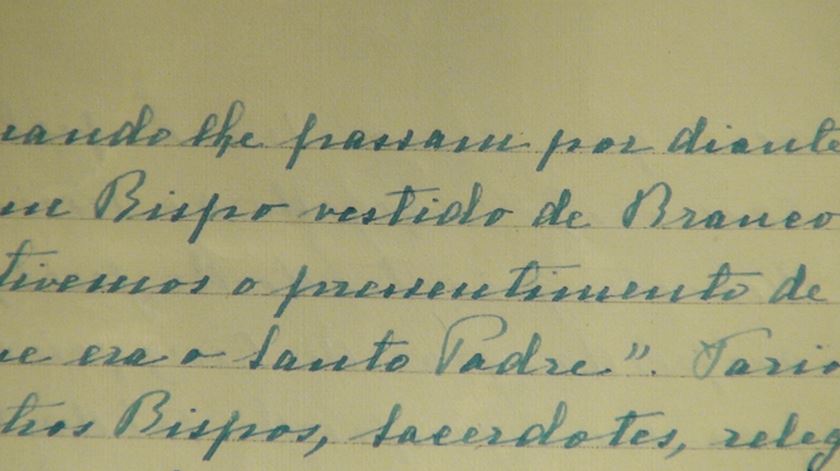 uando lhe passam por diante
um Bispo vestido de Branco
tivemos o pressentimento de
ue era o Santo Padre". Vario
tros Bispos, sacerdotes, releg